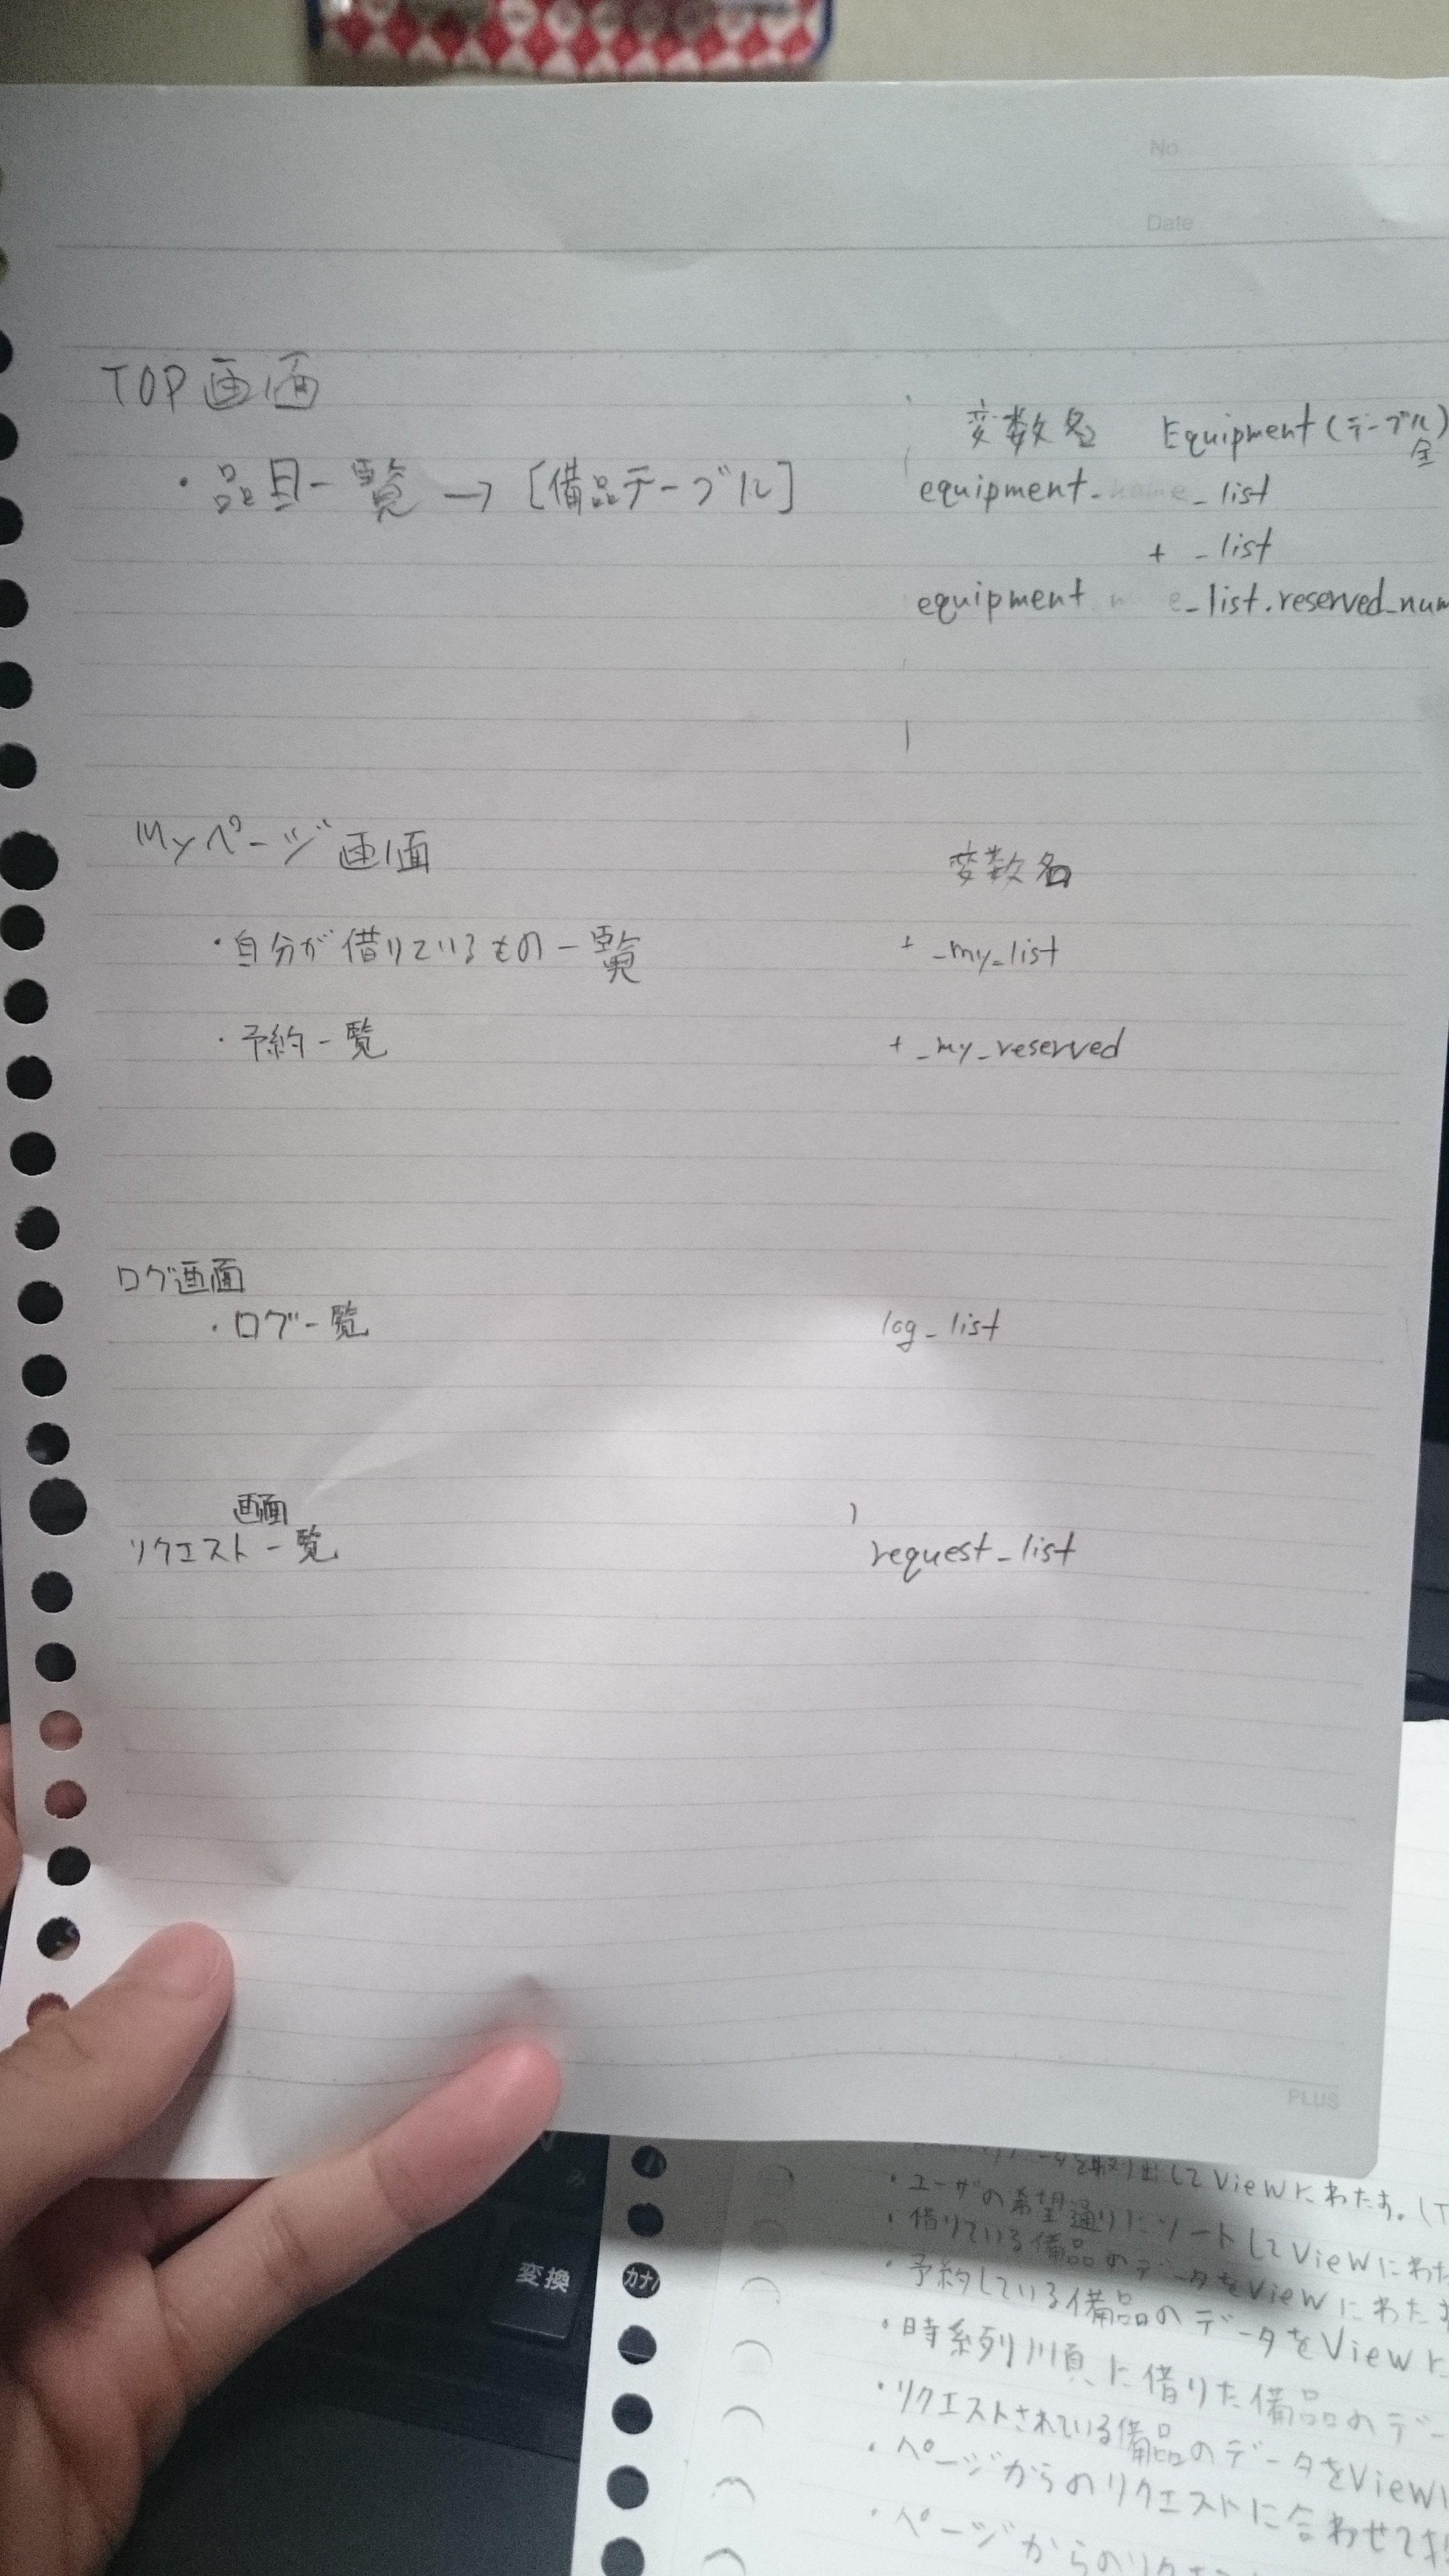 No.
Date
TOP画面
変数名 Equipment(テーブル)
全
・品目一覧 → [備品テーブル] equipment__list
+ _list
equipment _list.reserved_num
Myページ画面 変数名
・自分が借りているもの一覧 + _my_list
・予約一覧 + _my_reserved
ログ画面
・ログ一覧 log_list
画面
リクエスト一覧 request_list
PLUS
み
変換
カナ/
データを取り出してViewにわたす。(T
・ユーザの希望通りにソートしてViewにわた
・借りている備品のデータをViewにわた
・予約している備品のデータをViewに
・時系列順に借りた備品のデー
・リクエストされている備品のデータをViewに
・ページからのリクエストに合わせて
・ページからのリクエ